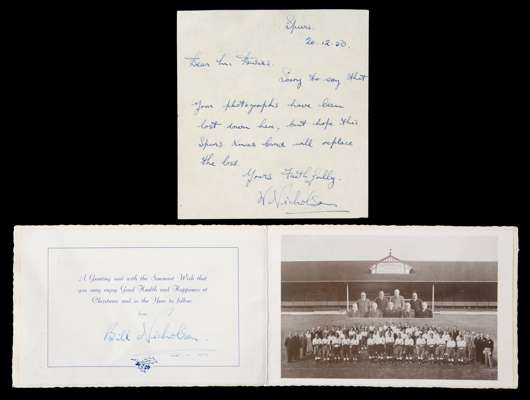 Spurs.
20.12.50
Dear
Sorry to say that
Your photographs have been
lost down here, but hope this
Spurs Xmas card will replace
the lost
Yours Faithfully.
W. Nicholson
A Greeting sent with the Sincerest Wish that
you may enjoy Good Health and Happiness at
Christmas and in the Year to follow.
from
Bill Nicholson.